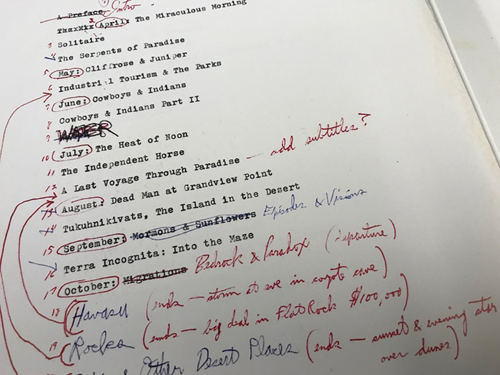 A Preface Intro
2 April: The Miraculous Morning
3 Solitaire
4 The Serpents of Paradise
5 May: Cliffrose & Juniper
6 Industrial Tourism & The Parks
7 June: Cowboys & Indians
8 Cowboys & Indians Part II
9 WATER
10 July: The Heat of Noon
11 The Independent Horse
12 A Last Voyage Through Paradise — add subtitles?
13 August: Dead Man at Grandview Point
14 Tukuhnikivats, The Island in the Desert
15 September: Mormons & Sunflowers Episodes & Visions
16 Terra Incognita: Into the Maze
17 October: Migrations Bedrock & Paradox (departure)
18 Havasu (ends — storm at eve in coyote cave)
19 Rocks (ends — big deal in Flat Rock $100,000)
& Other Desert Places (ends — sunset & evening star
over dunes)